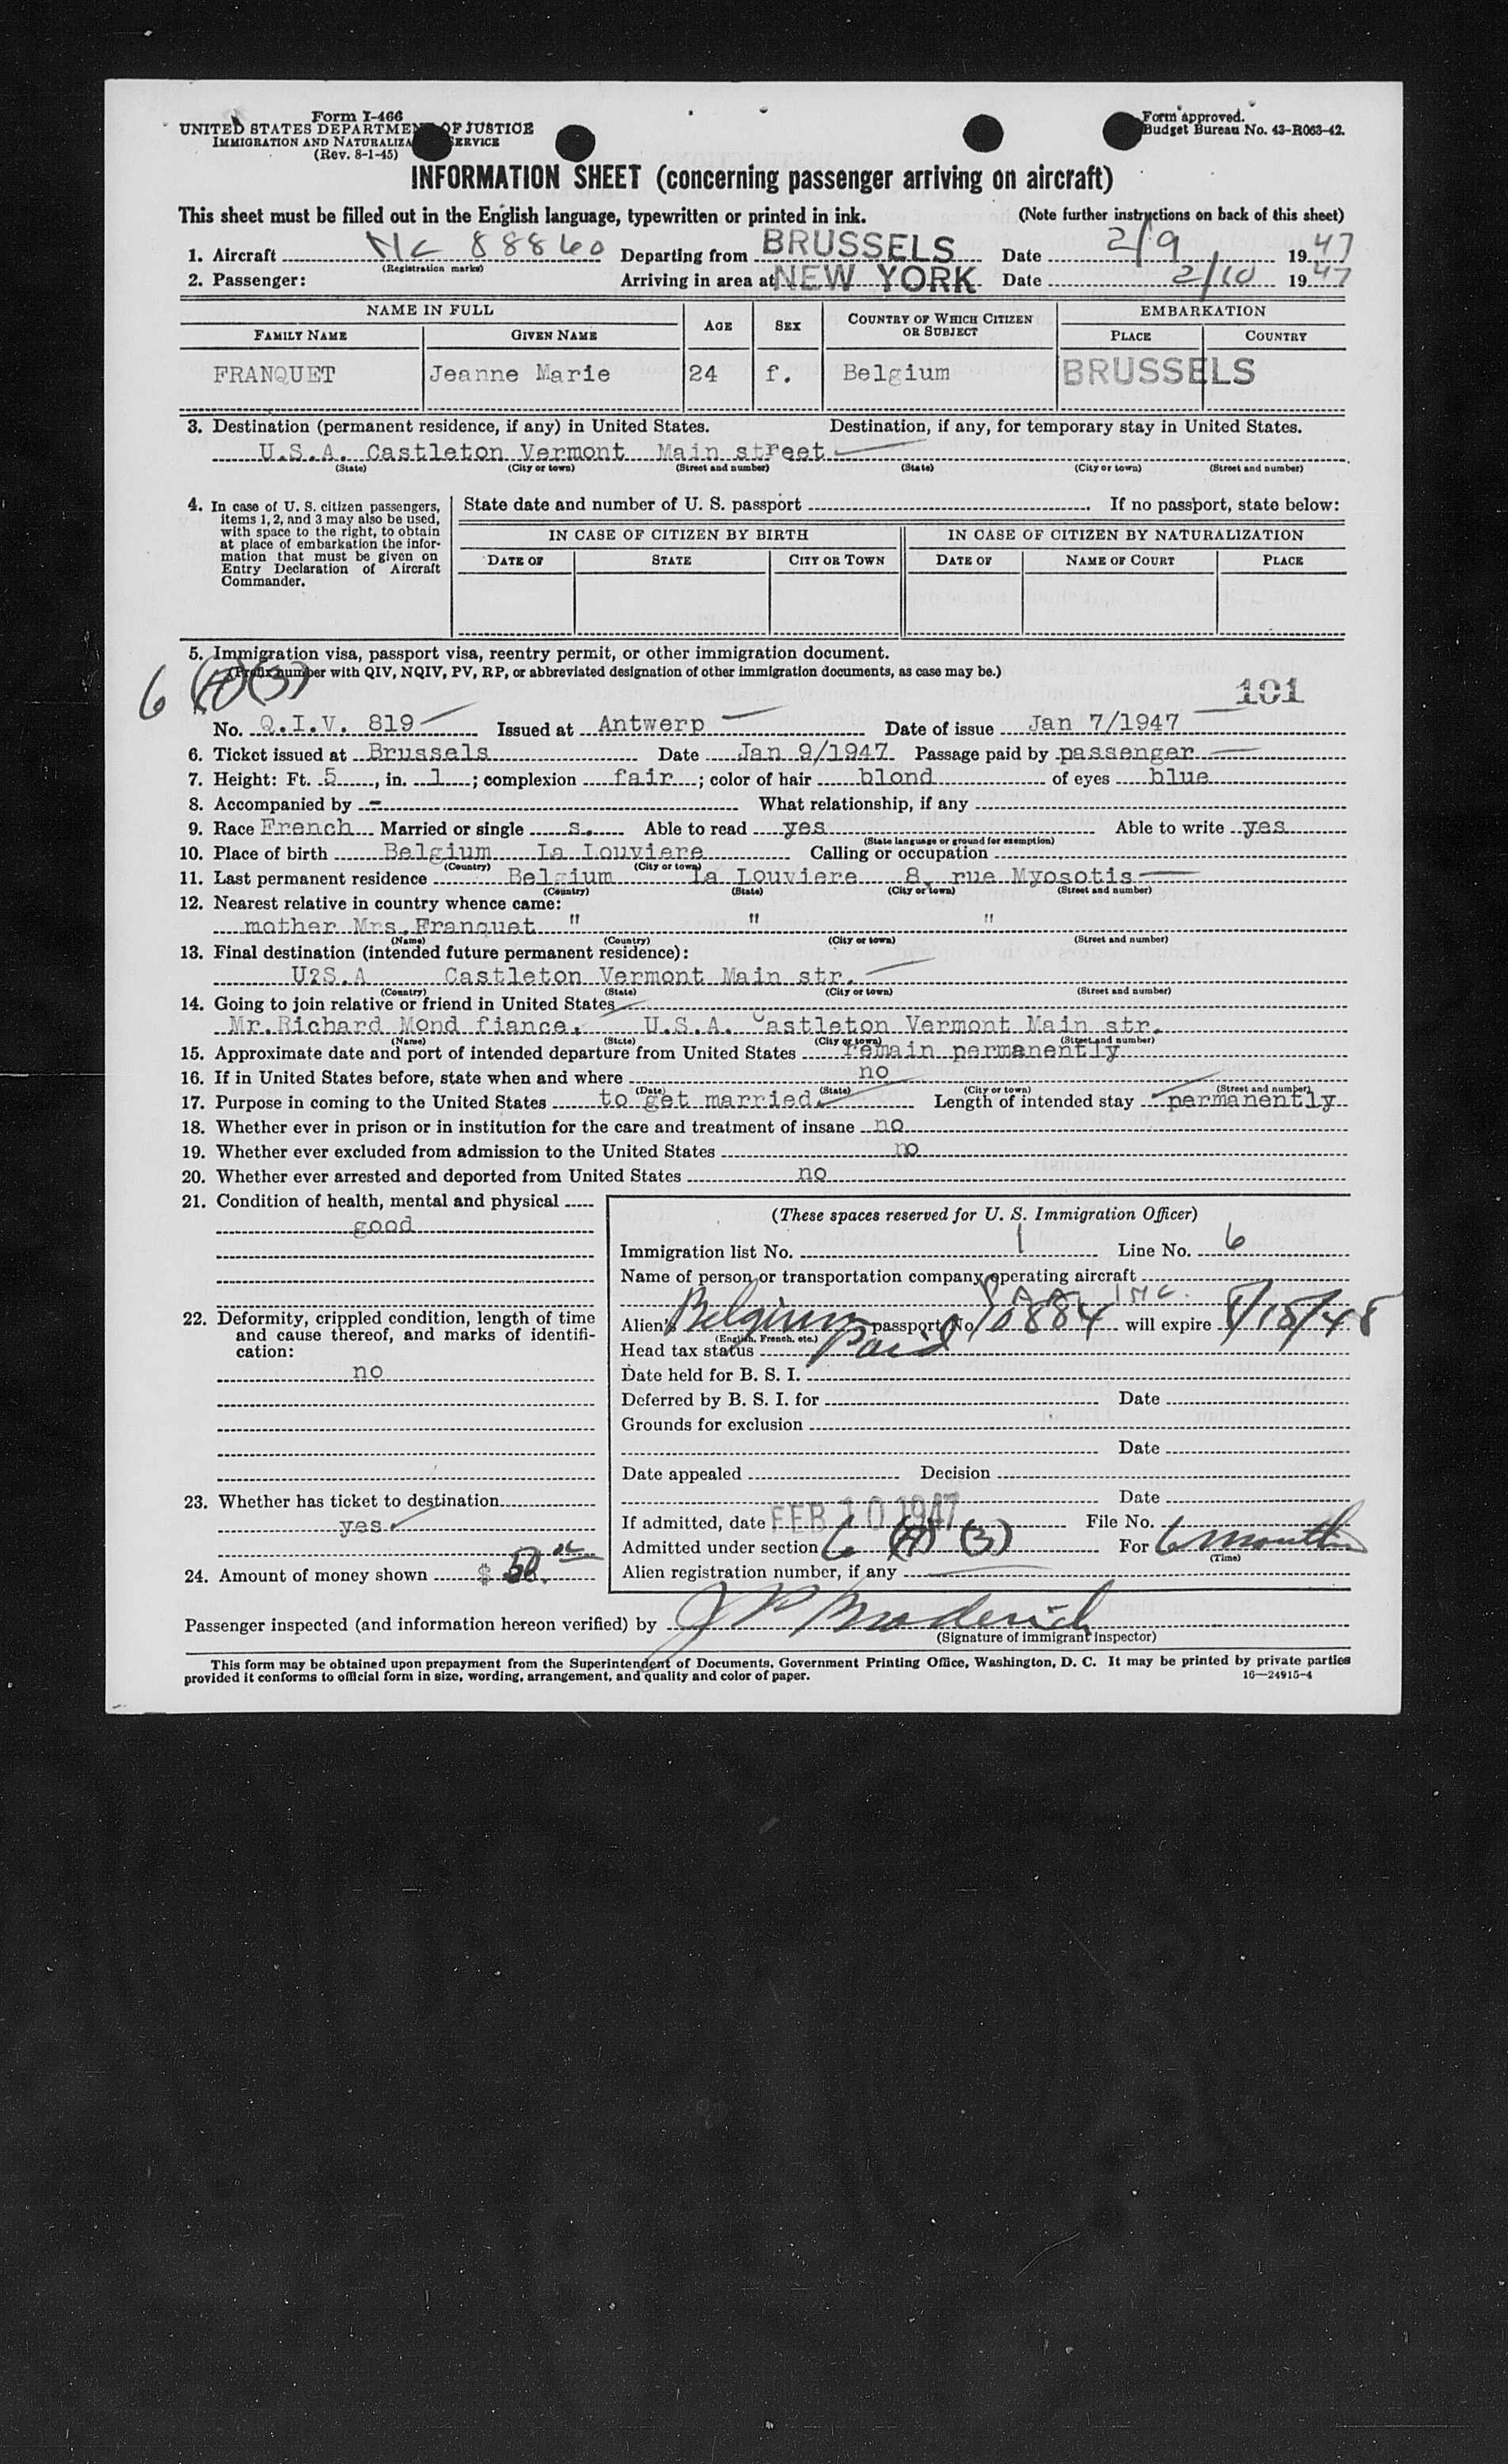 Form I-466
UNITED STATES DEPARTMENT OF JUSTICE
IMMIGRATION AND NATURALIZATION SERVICE
(Rev. 8-1-45)
Form approved.
Budget Bureau No. 43-R063-42.
INFORMATION SHEET (concerning passenger arriving on aircraft)
This sheet must be filled out in the English language, typewritten or printed in ink. (Note further instructions on back of this sheet)
1. Aircraft NC 88860 Departing from BRUSSELS Date 2/9 1947
(Registration marks)
2. Passenger: Arriving in area at NEW YORK Date 2/10 1947
NAME IN FULL AGE SEX COUNTRY OF WHICH CITIZEN OR SUBJECT EMBARKATION
FAMILY NAME GIVEN NAME PLACE COUNTRY
FRANQUET Jeanne Marie 24 f. Belgium BRUSSELS
3. Destination (permanent residence, if any) in United States. Destination, if any, for temporary stay in United States.
U.S.A. Castleton Vermont Main street
(State) (City or town) (Street and number) (State) (City or town) (Street and number)
4. In case of U. S. citizen passengers, items 1, 2, and 3 may also be used, with space to the right, to obtain at place of embarkation the information that must be given on Entry Declaration of Aircraft Commander.
State date and number of U. S. passport If no passport, state below:
IN CASE OF CITIZEN BY BIRTH IN CASE OF CITIZEN BY NATURALIZATION
DATE OF STATE CITY OR TOWN DATE OF NAME OF COURT PLACE
5. Immigration visa, passport visa, reentry permit, or other immigration document.
(Prefix number with QIV, NQIV, PV, RP, or abbreviated designation of other immigration documents, as case may be.)
6 (A)(3)
101
No. Q.I.V. 819 Issued at Antwerp Date of issue Jan 7/1947
6. Ticket issued at Brussels Date Jan 9/1947 Passage paid by passenger
7. Height: Ft. 5, in. 1; complexion fair; color of hair blond of eyes blue
8. Accompanied by - What relationship, if any
9. Race French Married or single s. Able to read yes Able to write yes
(State language or ground for exemption)
10. Place of birth Belgium La Louviere Calling or occupation
(Country) (City or town)
11. Last permanent residence Belgium La Louviere 8, rue Myosotis
(Country) (State) (City or town) (Street and number)
12. Nearest relative in country whence came:
mother Mrs.Franquet " " "
(Name) (Country) (City or town) (Street and number)
13. Final destination (intended future permanent residence):
U?S.A Castleton Vermont Main str.
(Country) (State) (City or town) (Street and number)
14. Going to join relative or friend in United States
Mr.Richard Mond fiance. U.S.A. Castleton Vermont Main str.
(Name) (State) (City or town) (Street and number)
15. Approximate date and port of intended departure from United States remain permanently
16. If in United States before, state when and where no
(Date) (State) (City or town) (Street and number)
17. Purpose in coming to the United States to get married. Length of intended stay permanently
18. Whether ever in prison or in institution for the care and treatment of insane no
19. Whether ever excluded from admission to the United States no
20. Whether ever arrested and deported from United States no
21. Condition of health, mental and physical
good
22. Deformity, crippled condition, length of time and cause thereof, and marks of identification:
no
23. Whether has ticket to destination
yes
24. Amount of money shown $ 50.
(These spaces reserved for U. S. Immigration Officer)
Immigration list No. 1 Line No. 6
Name of person or transportation company operating aircraft
P.A.A. INC.
Alien's Belgium passport No 10884 will expire 8/18/48
(English, French, etc.)
Head tax status Paid
Date held for B. S. I.
Deferred by B. S. I. for Date
Grounds for exclusion
Date
Date appealed Decision
Date
If admitted, date FEB 10 1947 File No.
Admitted under section 6 (A) (3) For 6 months
(Time)
Alien registration number, if any
Passenger inspected (and information hereon verified) by J P Broderick
(Signature of immigrant inspector)
This form may be obtained upon prepayment from the Superintendent of Documents, Government Printing Office, Washington, D. C. It may be printed by private parties
provided it conforms to official form in size, wording, arrangement, and quality and color of paper. 16—24915-4